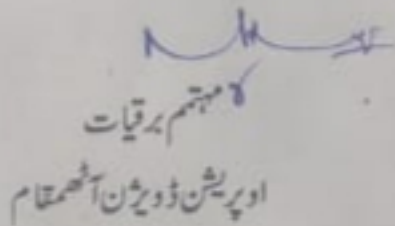 مہتمم برقیات
اوپریشن ڈویژن آٹھمقام